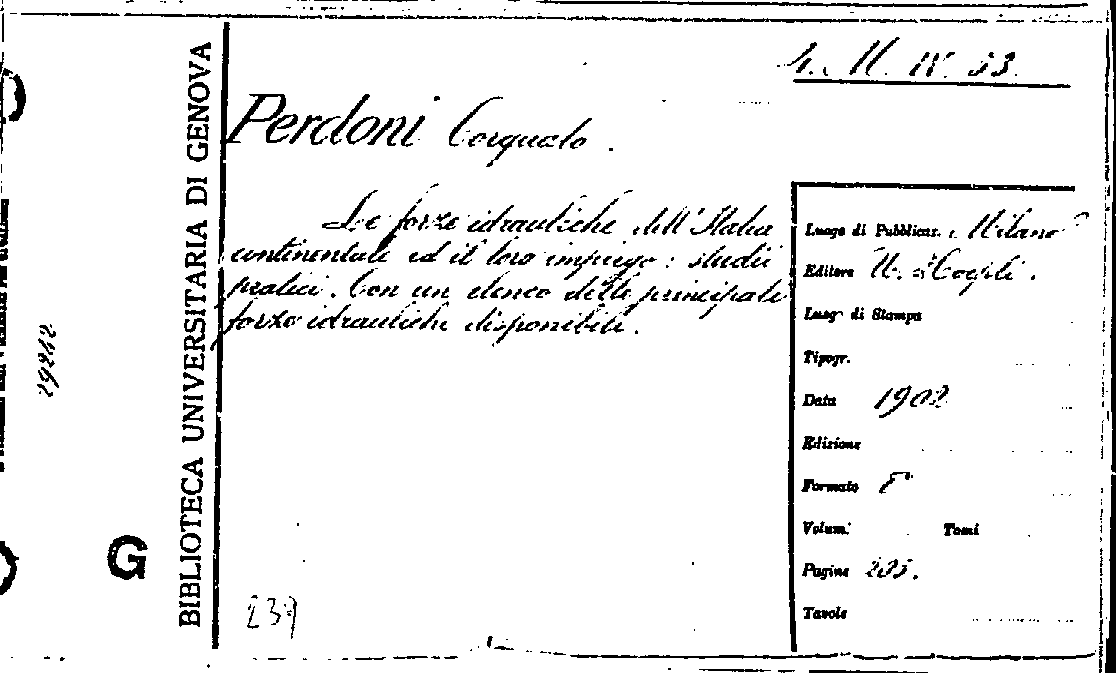 BIBLIOTECA UNIVERSITARIA DI GENOVA
G
29242
IV. 53.
Perdoni Torquato.
Le forze idrauliche dell'Italia
continentale ed il loro impiego: studii
pratici. Con un elenco delle principali
forze idrauliche disponibili.
239
Luogo di Pubblicaz. Milano
Editore U. Hoepli.
Luog. di Stampa
Tipogr.
Data 1902
Edizione
Formato 8°
Volum. Tomi
Pagine 235.
Tavole